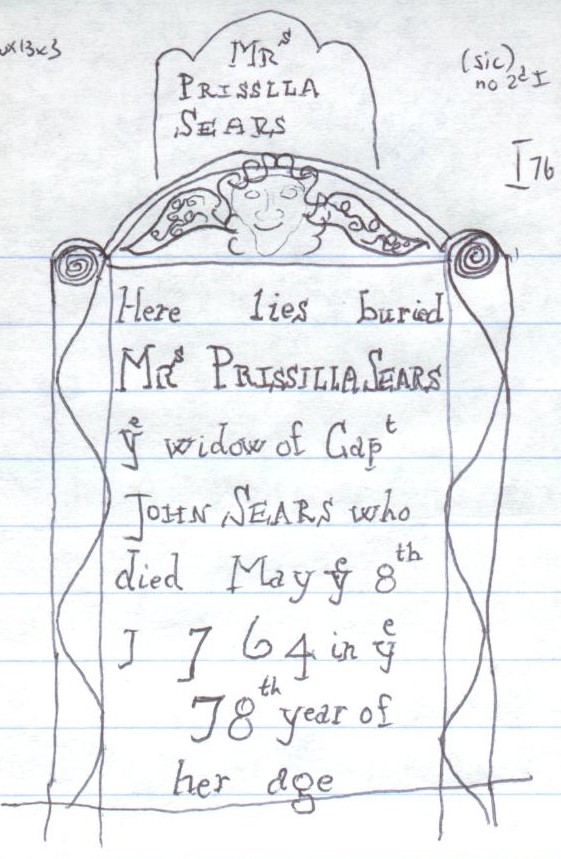 Mrs
PRISSLLA
SEARS
(sic)
no 2d I
I 76
x13x3
Here lies buried
Mrs PRISSILLA SEARS
ye widow of Capt
JOHN SEARS who
died May ye 8th
I 7 6 4 in ye
78th year of
her age